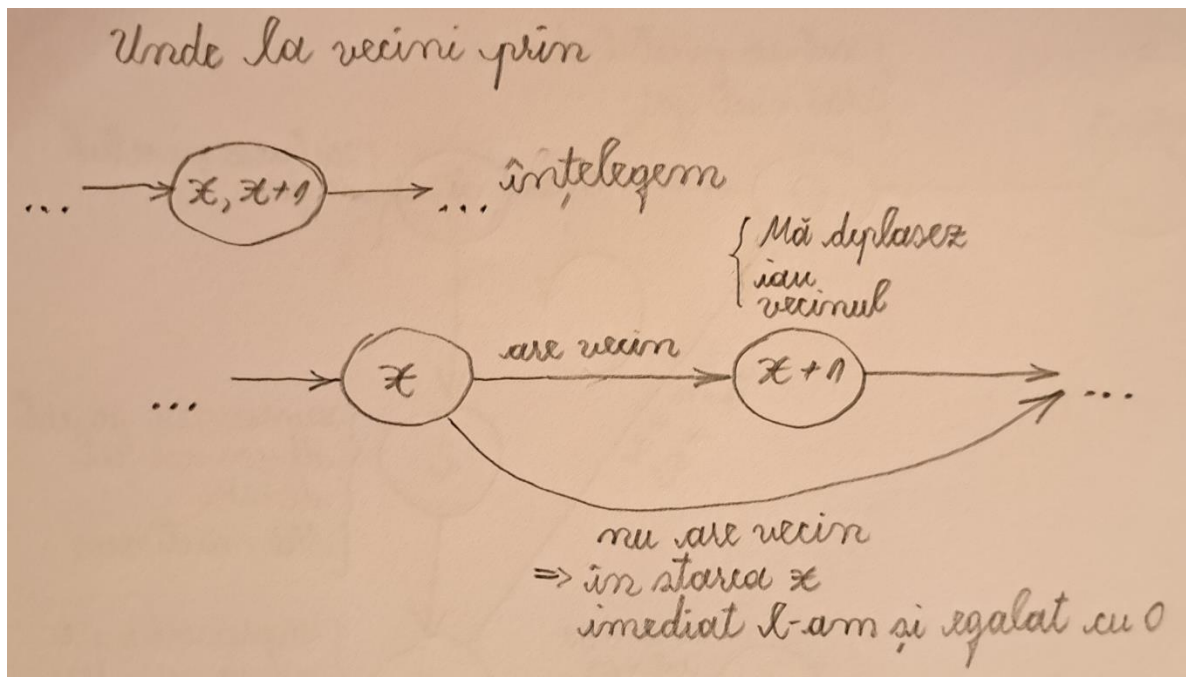 Unde la vecini prin
... x, x+1 ... înțelegem
{ Mă deplasez
iau
vecinul
... x are vecin x+1 ...
nu are vecin
=> în starea x
imediat l-am și egalat cu 0